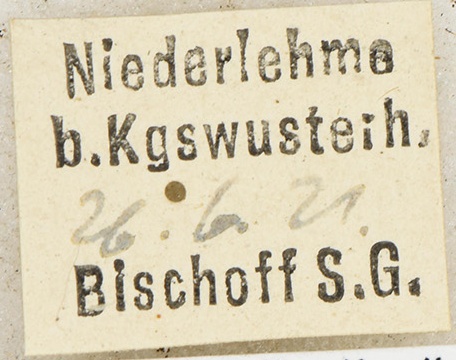 Niederlehme
b.Kgswusterh.
26.6.21.
Bischoff S.G.